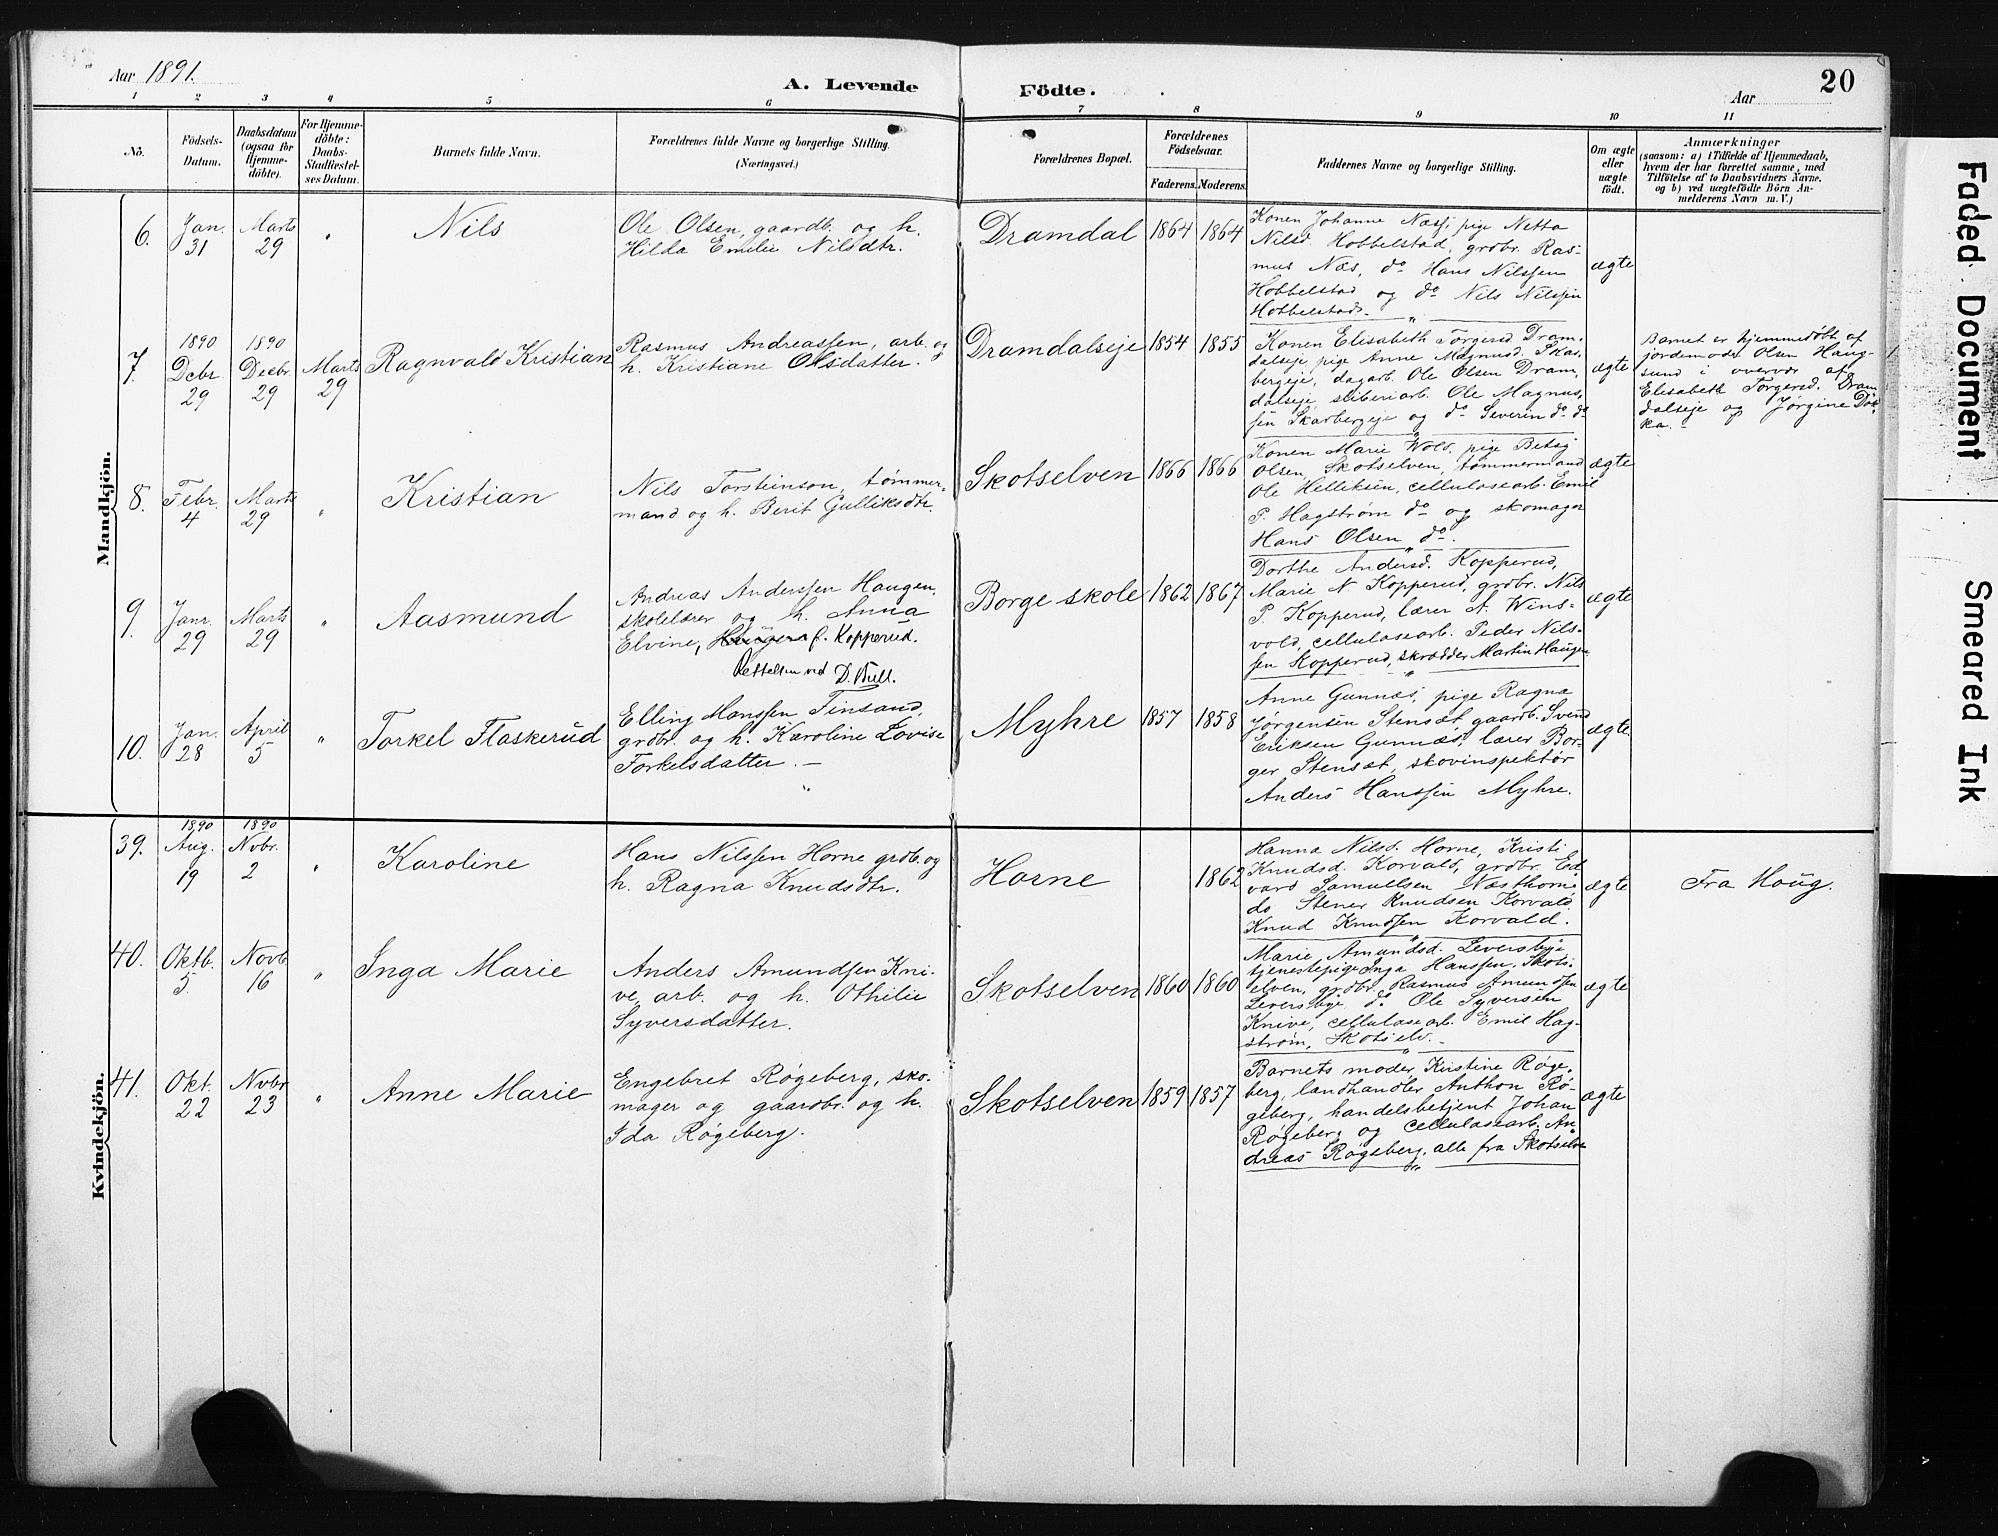 Aar 1891.
A. Levende Födte.
Aar
20
1 2 3 4 5 6 7 8 9 10 11
No.
Födsels-
Datum.
Daabsdatum
(ogsaa for
Hjemme-
döbte).
For Hjemme-
döbte:
Daabs-
Stadfæstel-
ses Datum.
Barnets fulde Navn.
Forældrenes fulde Navne og borgerlige Stilling.
(Næringsvei.)
Forældrenes Bopæl.
Forældrenes
Födselsaar.
Faderens. Moderens.
Faddernes Navne og borgerlige Stilling.
Om ægte
eller
uægte
födt.
Anmærkninger
(saasom: a) i Tilfælde af Hjemmedaab,
hvem der har forrettet samme, med
Tilföielse af to Daabsvidners Navne,
og b) ved uægtefödte Börn An-
melderens Navn m. V.)
Mandkjön.
6.
Jan.
31
Marts
29
"
Nils
Ole Olsen, gaardb. og h.
Hilda Emilie Nilsdtr.
Dramdal
1864
1864
Konen Johanne Næss, pige Netta
Nilsd. Hobbelstad, grdbr. Ras-
mus Næs, do Hans Nilssen
Hobbelstad og do Nils Nilssen
Hobbelstad.
ægte
7.
1890
Debr
29
1890
Decbr.
29
Marts
29
Ragnvald Kristian
Rasmus Andreassen, arb. og
h. Kristiane Olsdatter.
Dramdalseje
1854
1855
Konen Elisabeth Torgersd. Dram-
dalseje, pige Anne Magnusd. Skar-
bergeje, dagarb. Ole Olsen Dram-
dalseje sliberiarb. Ole Magnus-
sen Skarbergeje og do Severin do do
ægte
Barnet er hjemmedöbt af
jordemoder Olsen Haug-
sund i overvær af
Elisabeth Torgersd. Dram
dalseje og Jørgine Dok-
ka.
8.
Febr.
4
Marts
29
"
Kristian
Nils Torsteinson, tømmer-
mand og h. Berit Gulliksdtr.
Skotselven
1866
1866
Konen Marie Wold, pige Betsy
Olsen, Skotselven, tømmermand
Ole Helleksen, cellulosearb. Emil
P. Hagstrøm do og skomager
Hans Olsen do.
ægte
9.
Janr.
29
Marts
29
"
Aasmund
Andreas Anderssen Haugen,
skolelærer og h. Anna
Elvine, f. Kopperud.
Rettelsen ved D. Bull.
Borge skole
1862
1867
Dorthe Andersd. Kopperud,
Marie N Kopperud, grdbr. Nils
P. Kopperud, lærer A. Wins-
vold, cellulosearb. Peder Nils-
sen Kopperud, skrædder Martin Haugen
ægte
10.
Jan.
28
April
5
"
Torkel Flaskerud
Elling Hanssen Finsand,
grdbr. og h. Karoline Lovise
Torkelsdatter. –
Myhre
1857
1858
Anne Gunnæs, pige Ragna
Jørgensen Stensæt, gaardb. Svend
Eriksen Gunnæs, lærer Bor-
ger Stensæt, skovinspektør
Anders Hanssen Myhre.
ægte
Kvindekjön.
39.
1890
Aug.
19
1890
Novbr.
2
"
Karoline
Hans Nilssen Horne grdb. og
h. Ragna Knudsdtr.
Horne
1862
Hanna Nilsd. Horne, Kristi
Knudsd. Korvald, grdbr. Ed
vard Samuelsen Næsthorne
do Stener Knudsen Korvald
Knud Knudssen Korvald.
ægte
Fra Houg.
40.
Oktb.
5.
Novb
16
"
Inga Marie
Anders Amundsen Kni-
ve, arb. og h. Othilie
Syversdatter.
Skotselven
1860
1860
Marie Amundsd. Leversbyeje
tjenestepige Inga Hanssen, Skots-
elven, grdbr. Rasmus Amundsen
Leversbyeje do Ole Syversen
Knive, cellulosearb. Emil Hag-
strøm, Skotselv.
ægte
41.
Okt.
22
Nvbr
23
"
Anne Marie
Engebret Røgeberg, sko-
mager og gaardbr. og h.
Ida Røgeberg.
Skotselven
1859
1857
Barnets moder, Kirstine Røge-
berg, landhandler Anthon Rø-
geberg, handelsbetjent Johan
Røgeberg og cellulosearb. An-
dreas Røgeberg, alle fra Skotselve
ægte
Faded Document
Smeared Ink